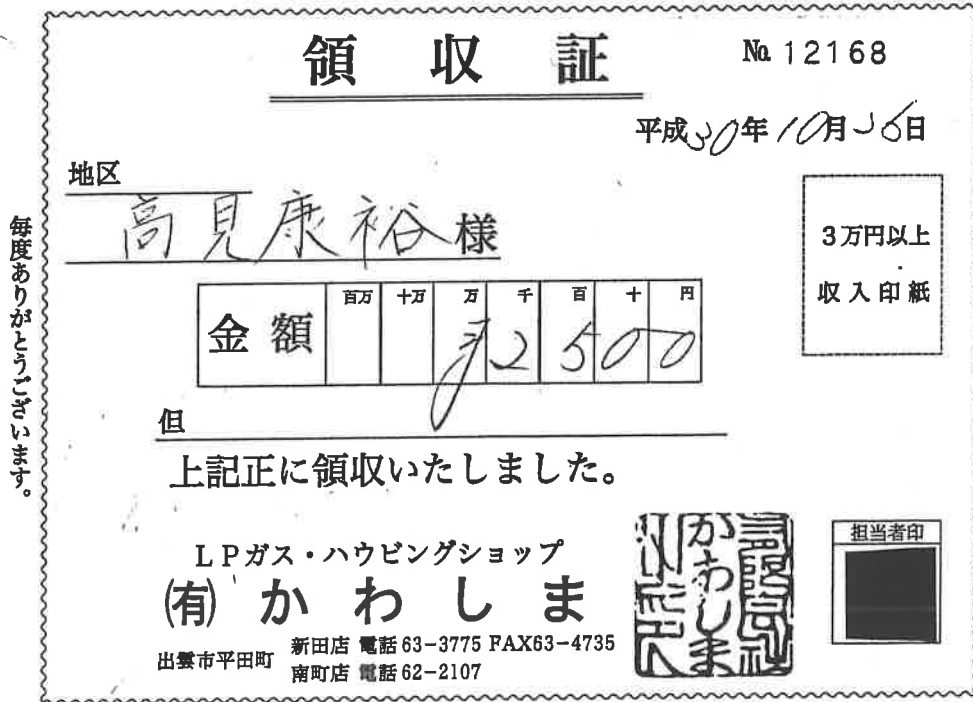 領収証
No. 12168
平成30年10月26日
地区
高見康裕様
3万円以上
収入印紙
金額 百万 十万 万 千 百 十 円
¥2500
但
上記正に領収いたしました。
毎度ありがとうございます。
LPガス・ハウビングショップ
(有) かわしま
出雲市平田町
新田店 電話63-3775 FAX63-4735
南町店 電話62-2107
かわしま
担当者印